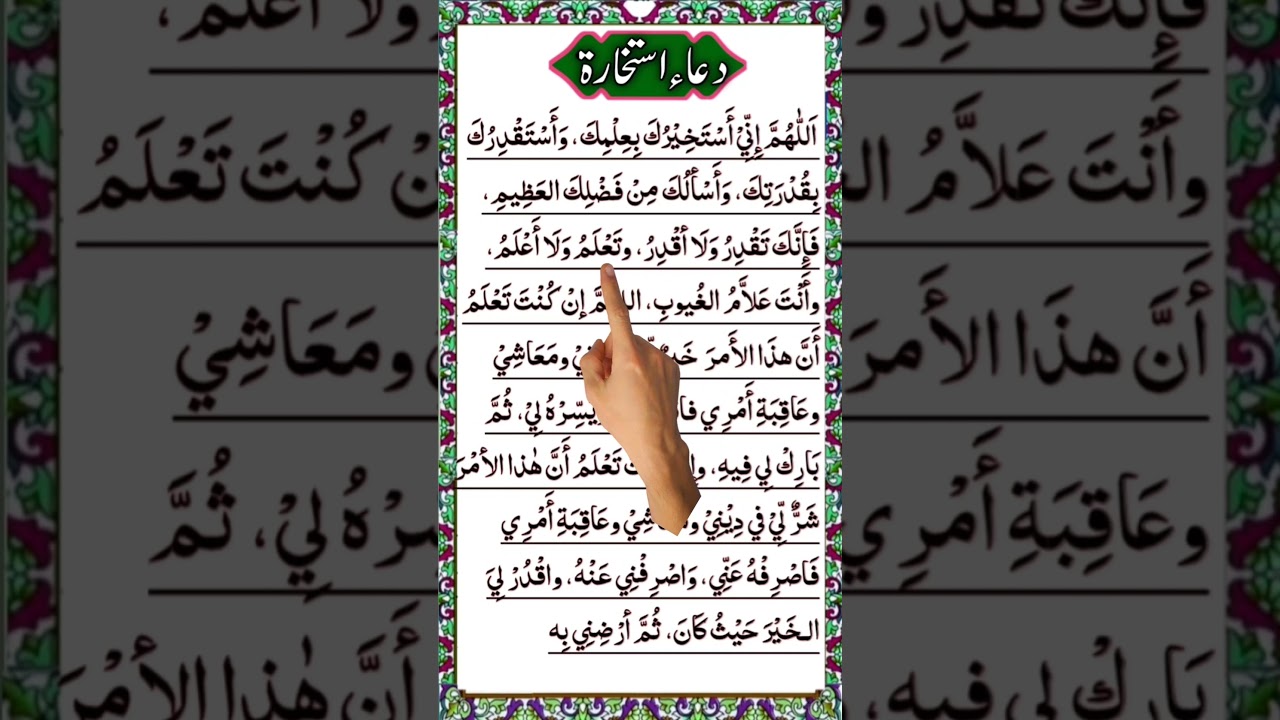 دعاء استخارة
اَللّٰهُمَّ إِنِّيْ أَسْتَخِيْرُكَ بِعِلْمِكَ، وَأَسْتَقْدِرُكَ
بِقُدْرَتِكَ، وَأَسْأَلُكَ مِنْ فَضْلِكَ العَظِيمِ،
فَإِنَّكَ تَقْدِرُ وَلَا أَقْدِرُ، وتَعْلَمُ وَلَا أَعْلَمُ،
وأَنْتَ عَلاَّمُ الغُيوبِ، إنْ كُنْتَ تَعْلَمُ
أَنَّ هذَا الأَمرَ ومَعَاشِيْ
وعَاقِبَةِ أَمْرِي لِيْ، ثُمَّ
بَارِكْ لِي فِيهِ، تَعْلَمُ أَنَّ هٰذا الأمْرَ
شَرٌّ لِّيْ في دِيْنِيْ وعَاقِبَةِ أَمْرِي
فَاصْرِفْهُ عَنِّي، وَاصْرِفْنِي عَنْهُ، واقْدُرْ لِيَ
الخَيْرَ حَيْثُ كَانَ، ثُمَّ أرْضِنِي بِه